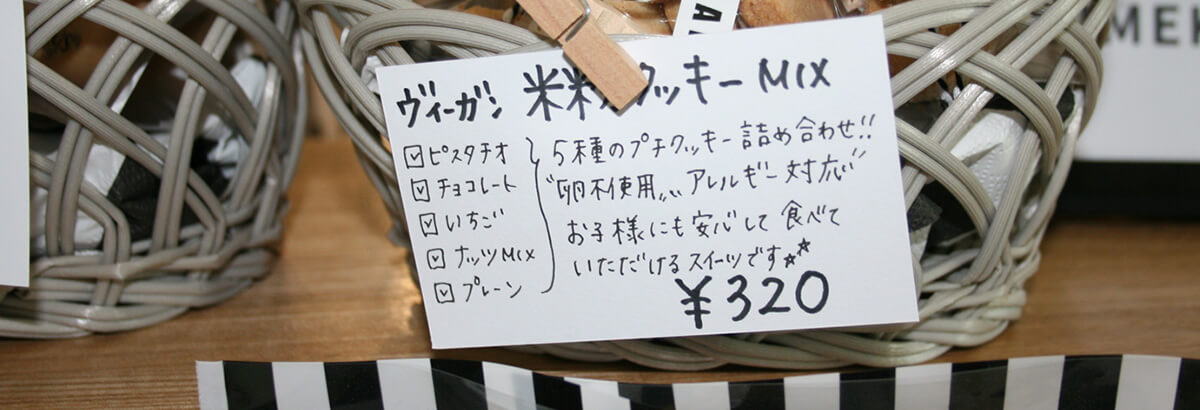 ヴィーガン 米粉クッキーMIX
☑ピスタチオ
☑チョコレート
☑いちご
☑ナッツMIX
☑プレーン
5種のプチクッキー詰め合わせ!!
"卵不使用„ アレルギー対応
お子様にも安心して食べて
いただけるスイーツです☆☆
¥320